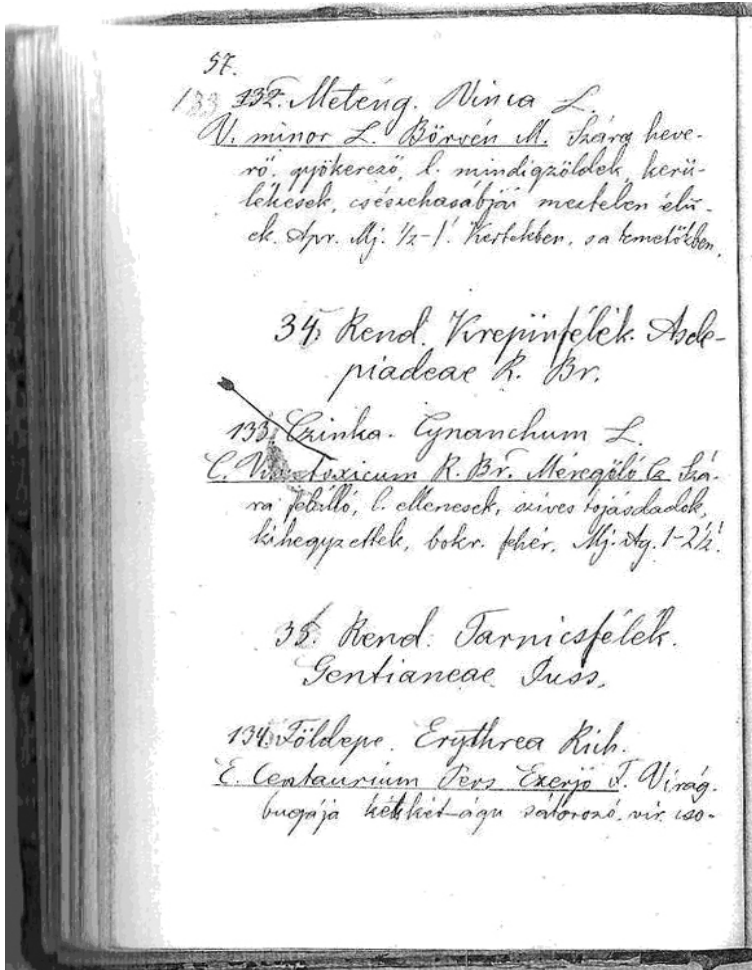 57.
133 132. Meténg. Vinca L.
V. minor L. Börvén M. Szára heve-
rő. gyökerező, l. mindigzöldek, kerü-
lékesek, csészehasábjai meztelen élű-
ek. Apr. Mj. 1/2-1'. Kertekben, s a temetőkben.
34. Rend. Krepinfélék. Ascle-
piadeae R. Br.
133. Czinka. Cynanchum L.
C. Vincetoxicum R. Br. Méregölő Cz. Szá-
ra felálló, l. ellenesek, szíves tojásdadok,
kihegyzettek, bokr. fehér, Mj. Ag. 1-2 1/2'.
35. Rend. Tarnicsfélék.
Gentianeae Juss.
134. Földepe. Erythrea Rich.
E. Centaurium Pers Ezerjó F. Virág.
bugája két-águ sátorozó. vir. cso-